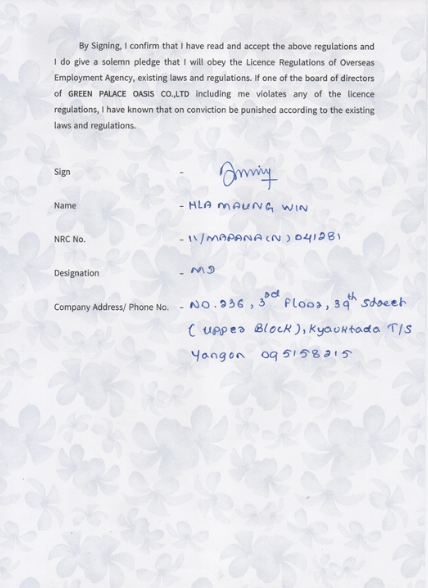 By Signing, I confirm that I have read and accept the above regulations and
I do give a solemn pledge that I will obey the Licence Regulations of Overseas
Employment Agency, existing laws and regulations. If one of the board of directors
of GREEN PALACE OASIS CO.,LTD including me violates any of the licence
regulations, I have known that on conviction be punished according to the existing
laws and regulations.
Sign -
Name - HLA MAUNG WIN
NRC No. - 11/MAPANA(N) 041281
Designation - MD
Company Address/ Phone No. - NO.236, 3rd Floor, 39th Street
(Upper Block), Kyauktada T/S
Yangon 095158215